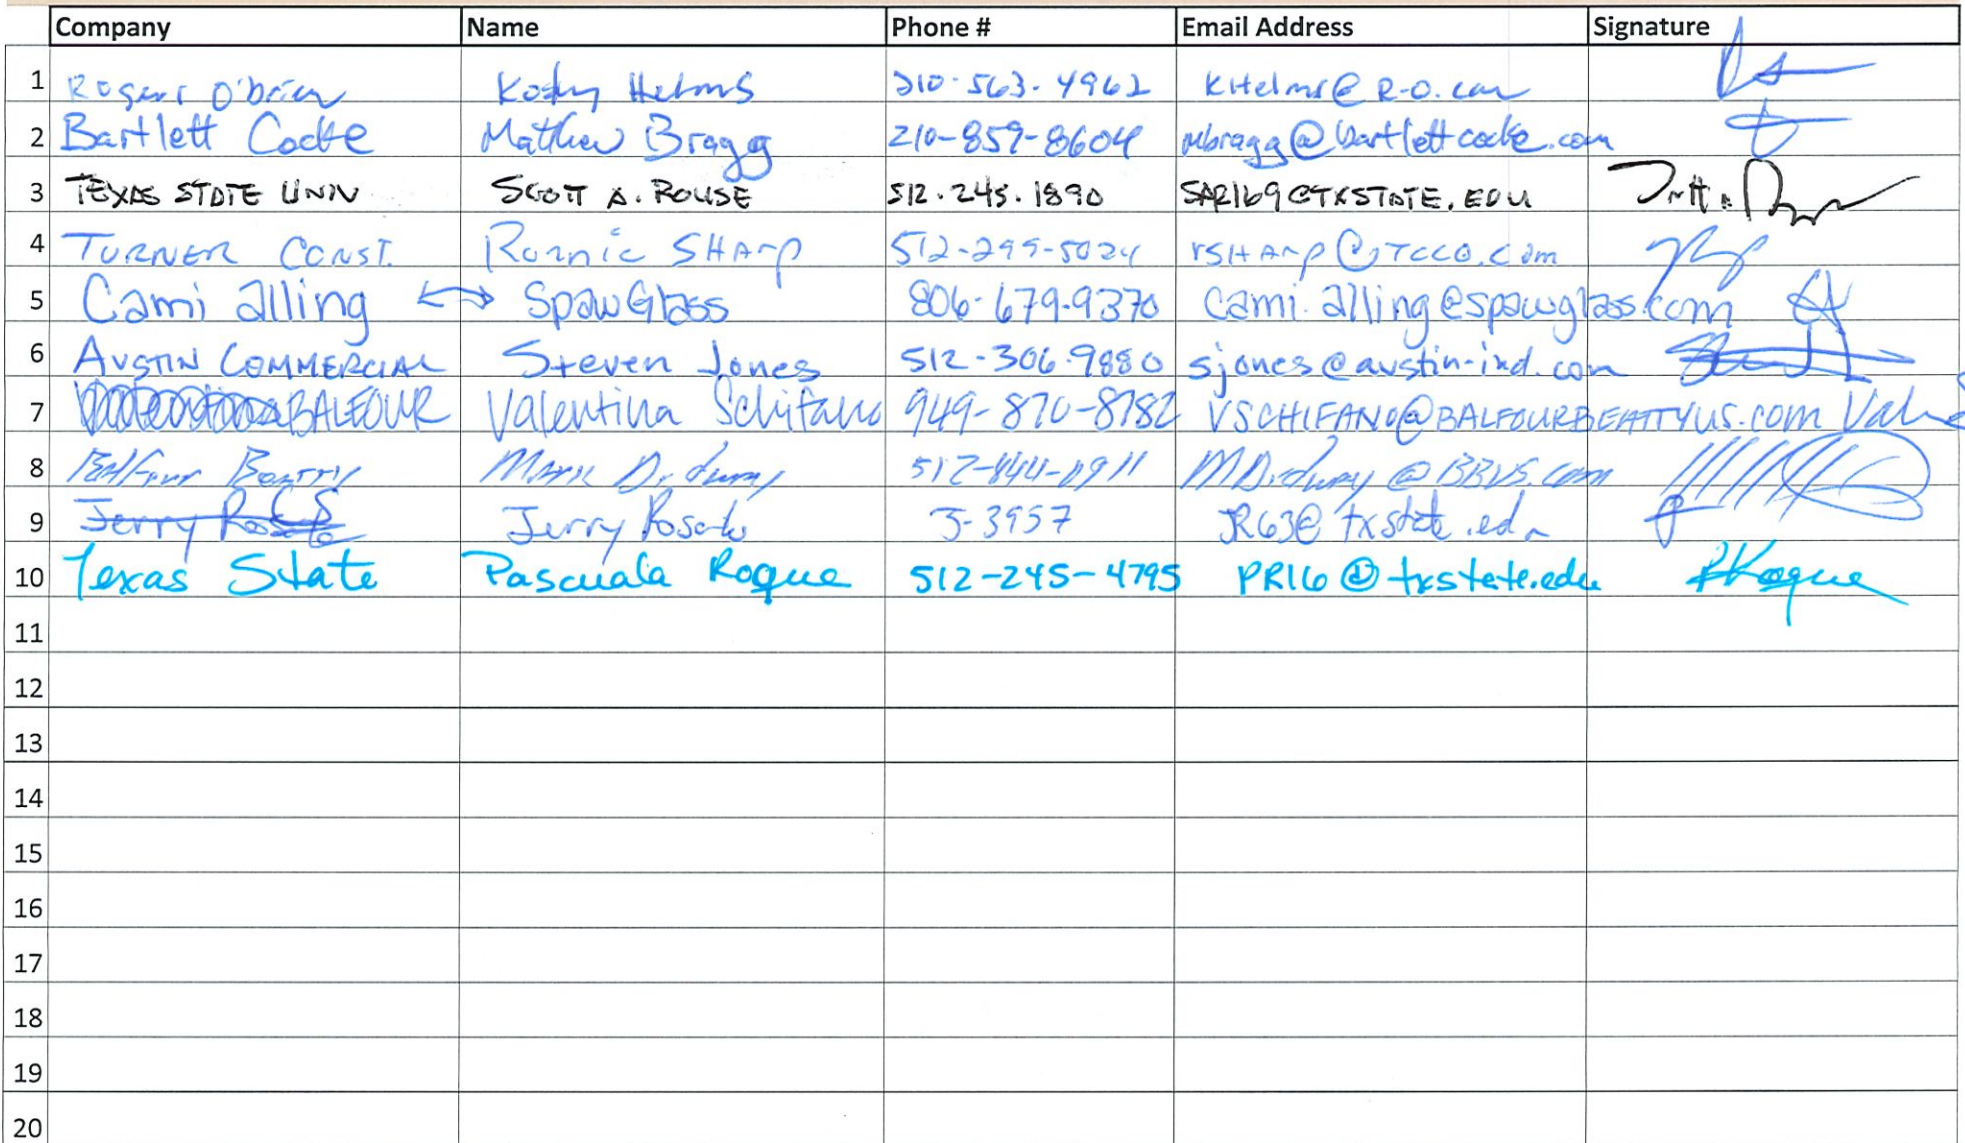 Company Name Phone # Email Address Signature
1 Rogers O'brien Kody Helms 210-563-4962 KHelms@R-O.com
2 Bartlett Cocke Mathew Bragg 210-859-8604 mbragg@bartlettcocke.com
3 TEXAS STATE UNIV SCOTT A. ROUSE 512.245.1890 SAR169@TXSTATE.EDU
4 TURNER CONST. Ronnie SHArp rSHArp@TCCO.Com
5 Cami alling ↔ SpawGlass 806-679-9370 cami.alling@spawglass.com
6 AUSTIN COMMERCIAL Steven Jones 512-306-9880 sjones@austin-ind.com
7 BALFOUR Valentina Schifano 949-870-8782 VSCHIFANO@BALFOURBEATTYUS.com
8 Balfour Beatty Mark
9 Jerry 5-3957 JR63@txstate.edu
10 Texas State Pascuala Roque 512-245-4795 PR16@txstate.edu PRoque
11
12
13
14
15
16
17
18
19
20